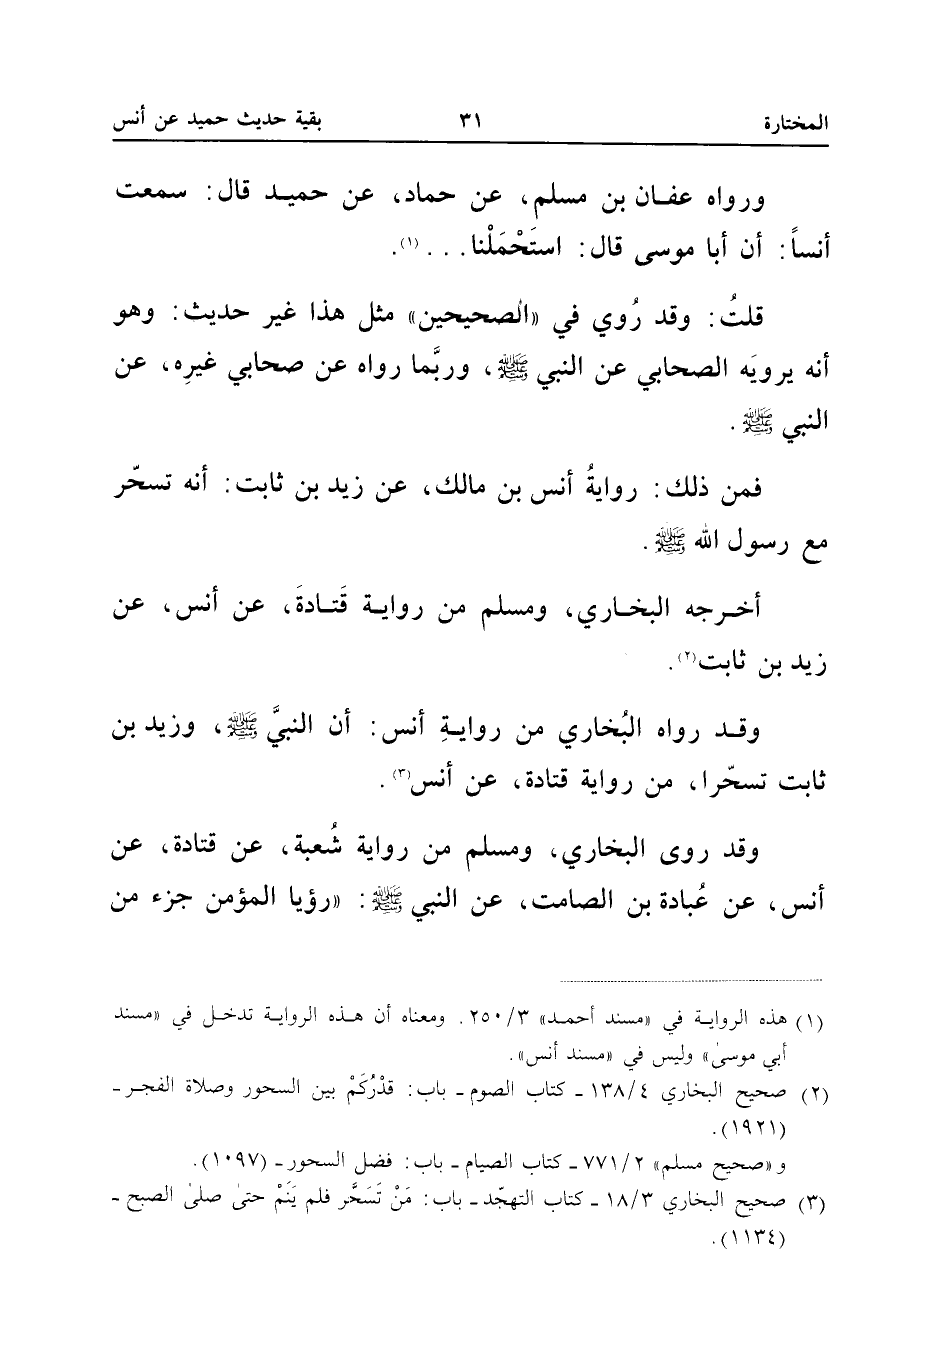 المختارة ٣١ بقية حديث حميد عن أنس
ورواه عفـان بن مسلم، عن حماد، عن حميـد قال: سمعت
أنساً: أن أبا موسى قال: استَحْمَلْنا. . .(١).
قلتُ: وقد رُوي في «الصُحيحين» مثل هذا غير حديث: وهو
أنه يرويَه الصحابي عن النبي ﷺ، وربَّما رواه عن صحابي غيرِه، عن
النبي ﷺ.
فمن ذلك: روايةُ أنس بن مالك، عن زيد بن ثابت: أنه تسحّر
مع رسول الله ﷺ.
أخـرجه البخـاري، ومسلم من روايـة قَتـادةَ، عن أنس، عن
زيد بن ثابت(٢).
وقـد رواه البُخاري من روايـةِ أنس: أن النبيَّ ﷺ، وزيد بن
ثابت تسحّرا، من رواية قتادة، عن أنس(٣).
وقد روى البخاري، ومسلم من رواية شُعبة، عن قتادة، عن
أنس، عن عُبادة بن الصامت، عن النبي ﷺ: «رؤيا المؤمن جزء من
(١) هذه الروايـة في «مسند أحمـد» ٢٥٠/٣. ومعناه أن هـذه الروايـة تدخـل في «مسند
أبي موسىٰ» وليس في «مسند أنس».
(٢) صحيح البخاري ١٣٨/٤ ـ كتاب الصوم ـ باب: قدْرُكَمْ بين السحور وصلاة الفجـر ـ
(١٩٢١).
و «صحيح مسلم» ٧٧١/٢ ـ كتاب الصيام ـ باب: فضل السحور ـ (١٠٩٧).
(٣) صحيح البخاري ١٨/٣ ـ كتاب التهجّد ـ باب: مَنْ تَسَحَّر فلم يَنَمْ حتىٰ صلىٰ الصبح ـ
(١١٣٤).